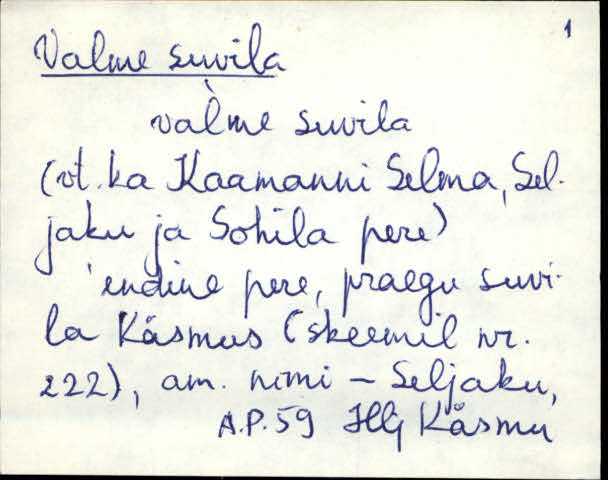 1
Valme suvila
val̀me suvila
(vt. ka Kaamanni Selma, Sel-
jaku ja Sohila pere)
'endine pere, praegu suvi-
la Käsmus (skeemil nr.
222), am. nimi – Seljaku,
A.P. 59 Hlj Käsmu